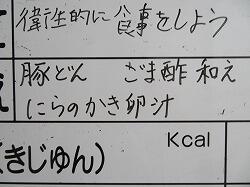 偉性的に食事をしよう
豚どん ごま酢和え
にらのかき卵汁
Kcal
(きじゅん)